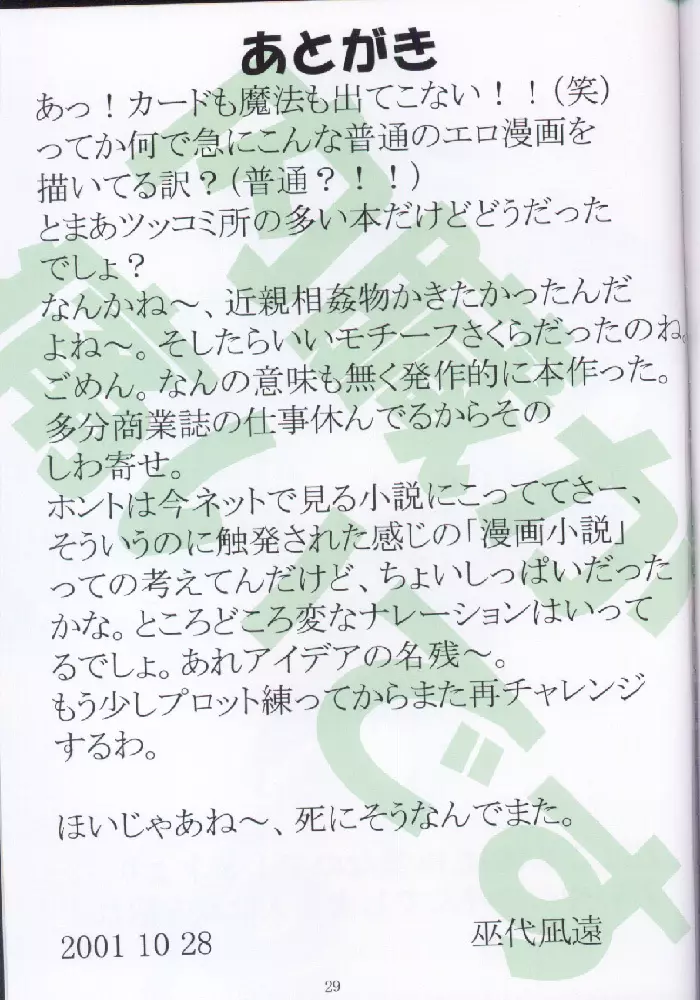 あとがき
あっ！カードも魔法も出てこない！！（笑）
ってか何で急にこんな普通のエロ漫画を
描いてる訳？（普通？！！）
とまあツッコミ所の多い本だけどどうだった
でしょ？
なんかね～、近親相姦物かきたかったんだ
よね～。そしたらいいモチーフさくらだったのね。
ごめん。なんの意味も無く発作的に本作った。
多分商業誌の仕事休んでるからその
しわ寄せ。
ホントは今ネットで見る小説にこっててさー、
そういうのに触発された感じの「漫画小説」
っての考えてんだけど、ちょいしっぱいだった
かな。ところどころ変なナレーションはいって
るでしょ。あれアイデアの名残～。
もう少しプロット練ってからまた再チャレンジ
するわ。
ほいじゃあね～、死にそうなんでまた。
2001 10 28
巫代凪遠
29
内臓が
痛いです